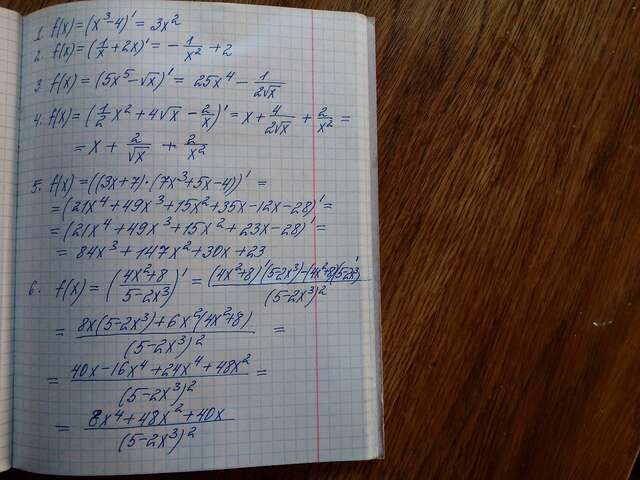 1. f(x) = (x³-4)' = 3x²
2. f(x) = (1/x + 2x)' = - 1/x² + 2
3. f(x) = (5x⁵ - √x)' = 25x⁴ - 1/(2√x)
4. f(x) = (1/2 x² + 4√x - 2/x)' = x + 4/(2√x) + 2/x² =
= x + 2/√x + 2/x²
5. f(x) = ((3x+7)·(7x³+5x-4))' =
= (21x⁴ + 49x³ + 15x² + 35x - 12x - 28)' =
= (21x⁴ + 49x³ + 15x² + 23x - 28)' =
= 84x³ + 147x² + 30x + 23
6. f(x) = ((4x²+8)/(5-2x³))' = ((4x²+8)'(5-2x³) - (4x²+8)(5-2x³)')/(5-2x³)²
= (8x(5-2x³) + 6x²(4x²+8))/(5-2x³)² =
= (40x - 16x⁴ + 24x⁴ + 48x²)/(5-2x³)² =
= (8x⁴ + 48x² + 40x)/(5-2x³)²